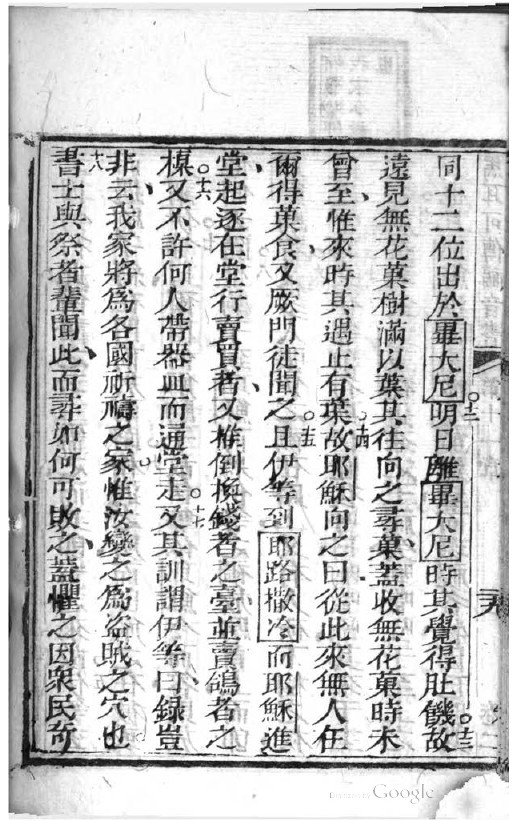 同十二位出於畢大尼○十二明日離畢大尼時其覺得肚饑故○十三
遠見無花菓樹滿以葉其往向之尋菓蓋收無花菓時未
曾至、惟來時其遇止有葉故○十四耶穌向之曰從此來無人在
爾得菓食又厥門徒聞之○十五且伊等到耶路撒冷而耶穌進
堂起逐在堂行賣買者、又推倒換錢者之臺並賣鴿者之
櫈○十六又不許何人帶器皿而通堂走○十七又其訓謂伊等曰、錄豈
非云我家將為各國祈禱之家惟汝變之為盜賊之穴也
十八書士與祭者輩聞此、而尋如何可敗之、蓋懼之因眾民奇
Digitized by Google